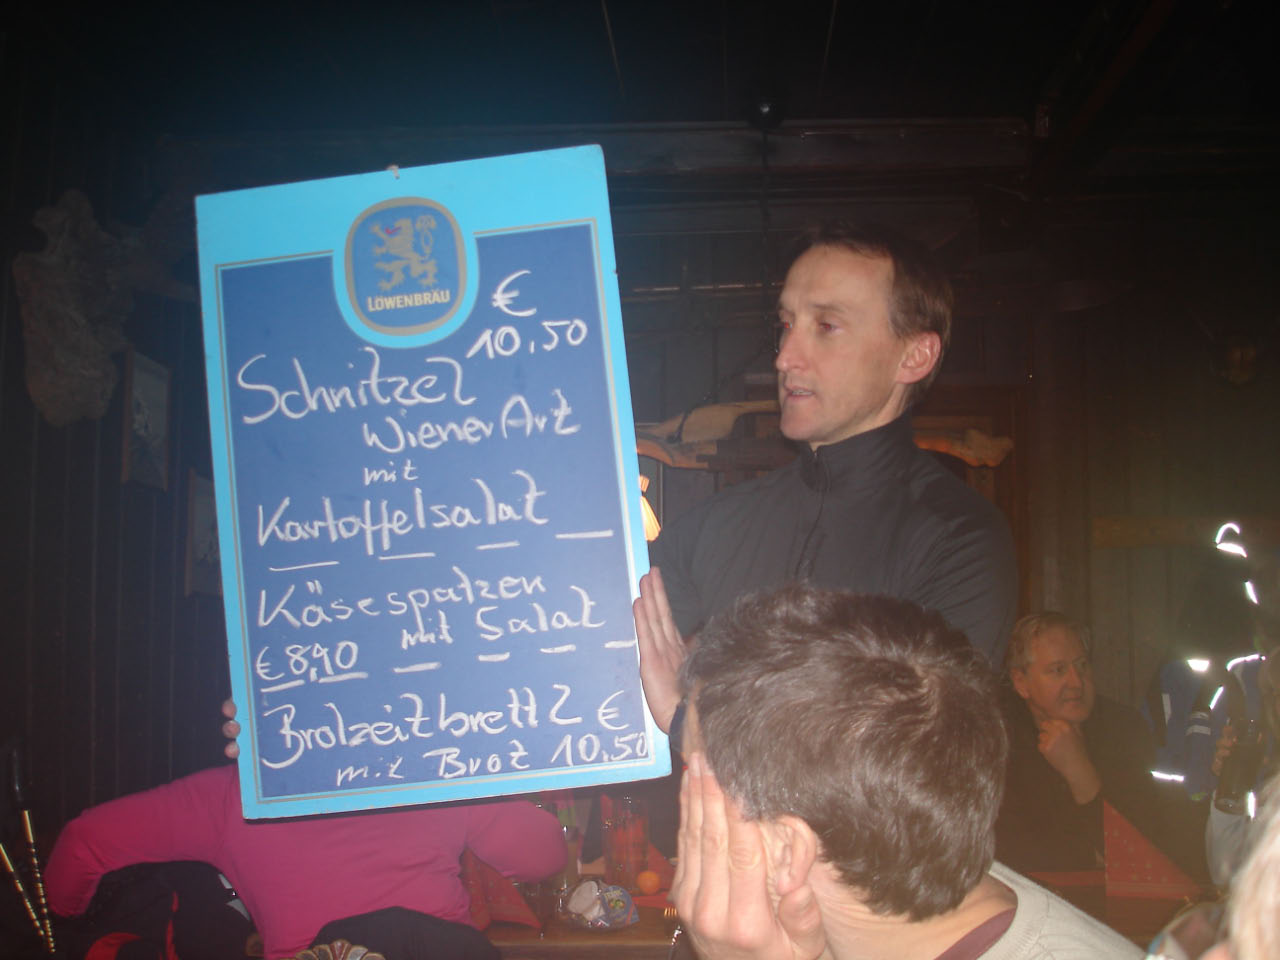 LÖWENBRÄU
€
10,50
Schnitzel
Wiener Art
mit
Kartoffelsalat
Käsespatzen
mit Salat
€ 8,90
Brotzeitbrettl €
mit Brot 10,50